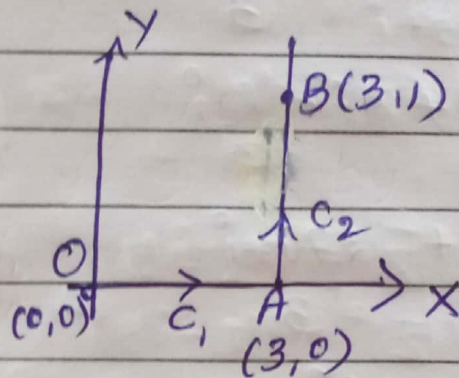 Y
B(3,1)
C₂
O
(0,0)
C₁
A
X
(3,0)